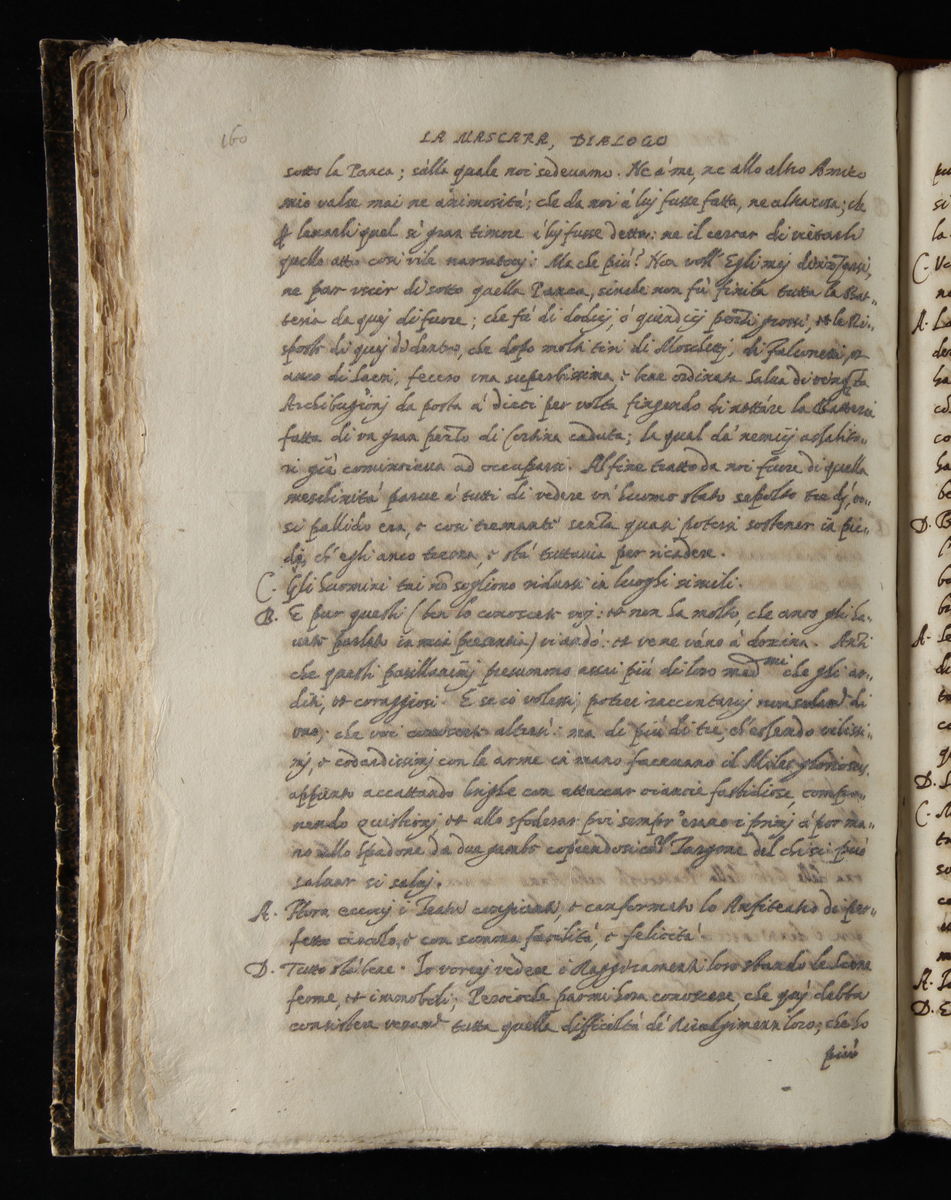 160
LA MASCARA, DIALOGO
sotto la Panca; sulla quale noi sedeuamo. Ne à me, ne allo altro Amico
mio valse mai ne animosità; che da noi à lui fusse fatta, ne altra cosa; che
leuarli quel sì gran timore à lui fusse detta: ne il cercar di vietarli
quello atto così vile Ma che più? Non voll' Egli mej
ne pur vscir di sotto quella Panca, sinche non fù finita tutta la Bat-
teria da quej di fuore; che fù di dodicj, ò quindicj pezzi grossi, et la Ri-
sposta di quej di dentro, che dopo molti tiri di Moschettj, di Falconetti et
anco di Sacri, fecero vna superbissima, e bene ordinata Salua di
Archibugionj da posta à dieci per volta fingendo di nettare la Batteria
fatta di vn gran pezzo di Cortina caduta; la qual da' nemicj assalito-
ri già cominciaua ad occuparsi. Al fine tratto da noi fuore di quella
meschinità parue à tutti di vedere vn' huomo stato sepolto tre dj, co-
si pallido era, e così tremante senza quasi potersi sostener in pie-
dj, ch' egli anco trema, e stà tuttauia per ricadere.
C. Gli huomini tai nõ sogliono ridursi in luoghi simili.
B. E pur questi (ben lo conoscete voj: et non ha molto, che anco gli ha-
uete parlato in mia presentia) vi andò: et ve ne vanno à dozina. Anzi
che questi pusillanimj presumono assai più di loro medmi che gli ar-
diti, et coraggiosi. E se io volessj potrei raccontaruj non soland di
vno, che voi conoscete altresì: ma di più di tre, ch' essendo vilissi-
mj, e codardissimj con le arme in mano faceuano il Miles gloriosus,
appunto accattando brighe con attaccar ciancie fastidiose, compo-
nendo quistionj, et allo sfoderar poi sempr' erano i primj à por ma-
no allo Spadone da due gambe coprendosi col Targone del chi si può
saluar si saluj.
A. Hora eccouj i Teatri congiunti e conformato lo Anfiteatro di per-
fetto circolo, e con somma facilità, e felicità.
D. Tutto stà bene. Io vorrej vedere i Raggiramenti loro stando le Scene
ferme, et immobili; Percioche parmi hora conoscere, che quj debba
consistere veramte tutta quella difficiltà de' Riuolgimenti loro, che ho
più